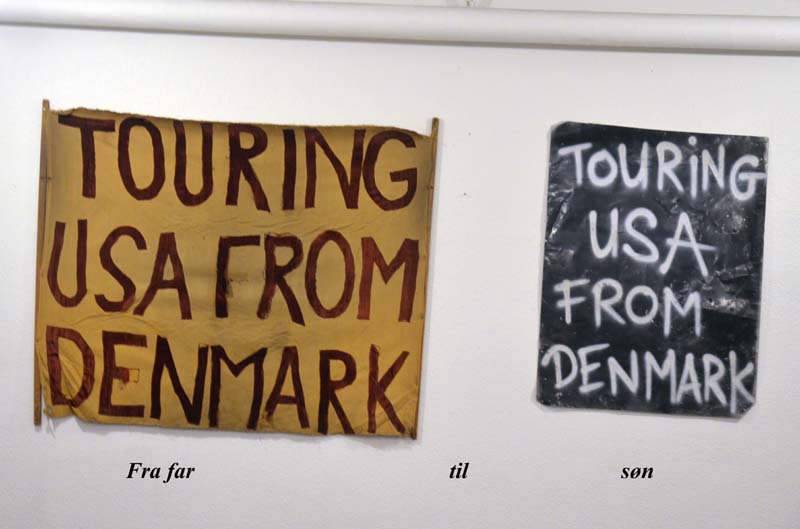 TOURING
USA FROM
DENMARK
TOURiNG
USA
FROM
DENMARK
Fra far til søn